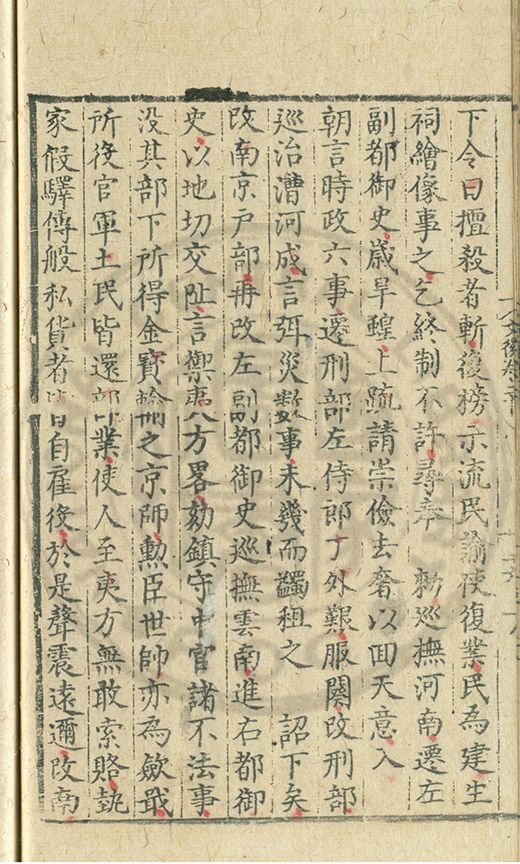 下令曰擅殺者斬復榜示流民諭使復業民為建生
祠繪像事之乞終制不許尋奉　勑巡撫河南遷左
副都御史歲旱蝗上疏請崇儉去奢以囬天意入
朝言時政六事遷刑部左侍郎丁外艱服闋改刑部
巡治漕河成言弭災數事未幾而蠲租之　詔下矣
改南京戶部再改左副都御史巡撫雲南進右都御
史以地切交阯言禦夷八方畧劾鎮守中官諸不法事
没其部下所得金寳輸之京師勲臣世帥亦為歛戢
所役官軍土民皆還部業使人至夷方無敢索賂埶
家假驛傳般私貨者皆自雇役於是聲震遠邇改南